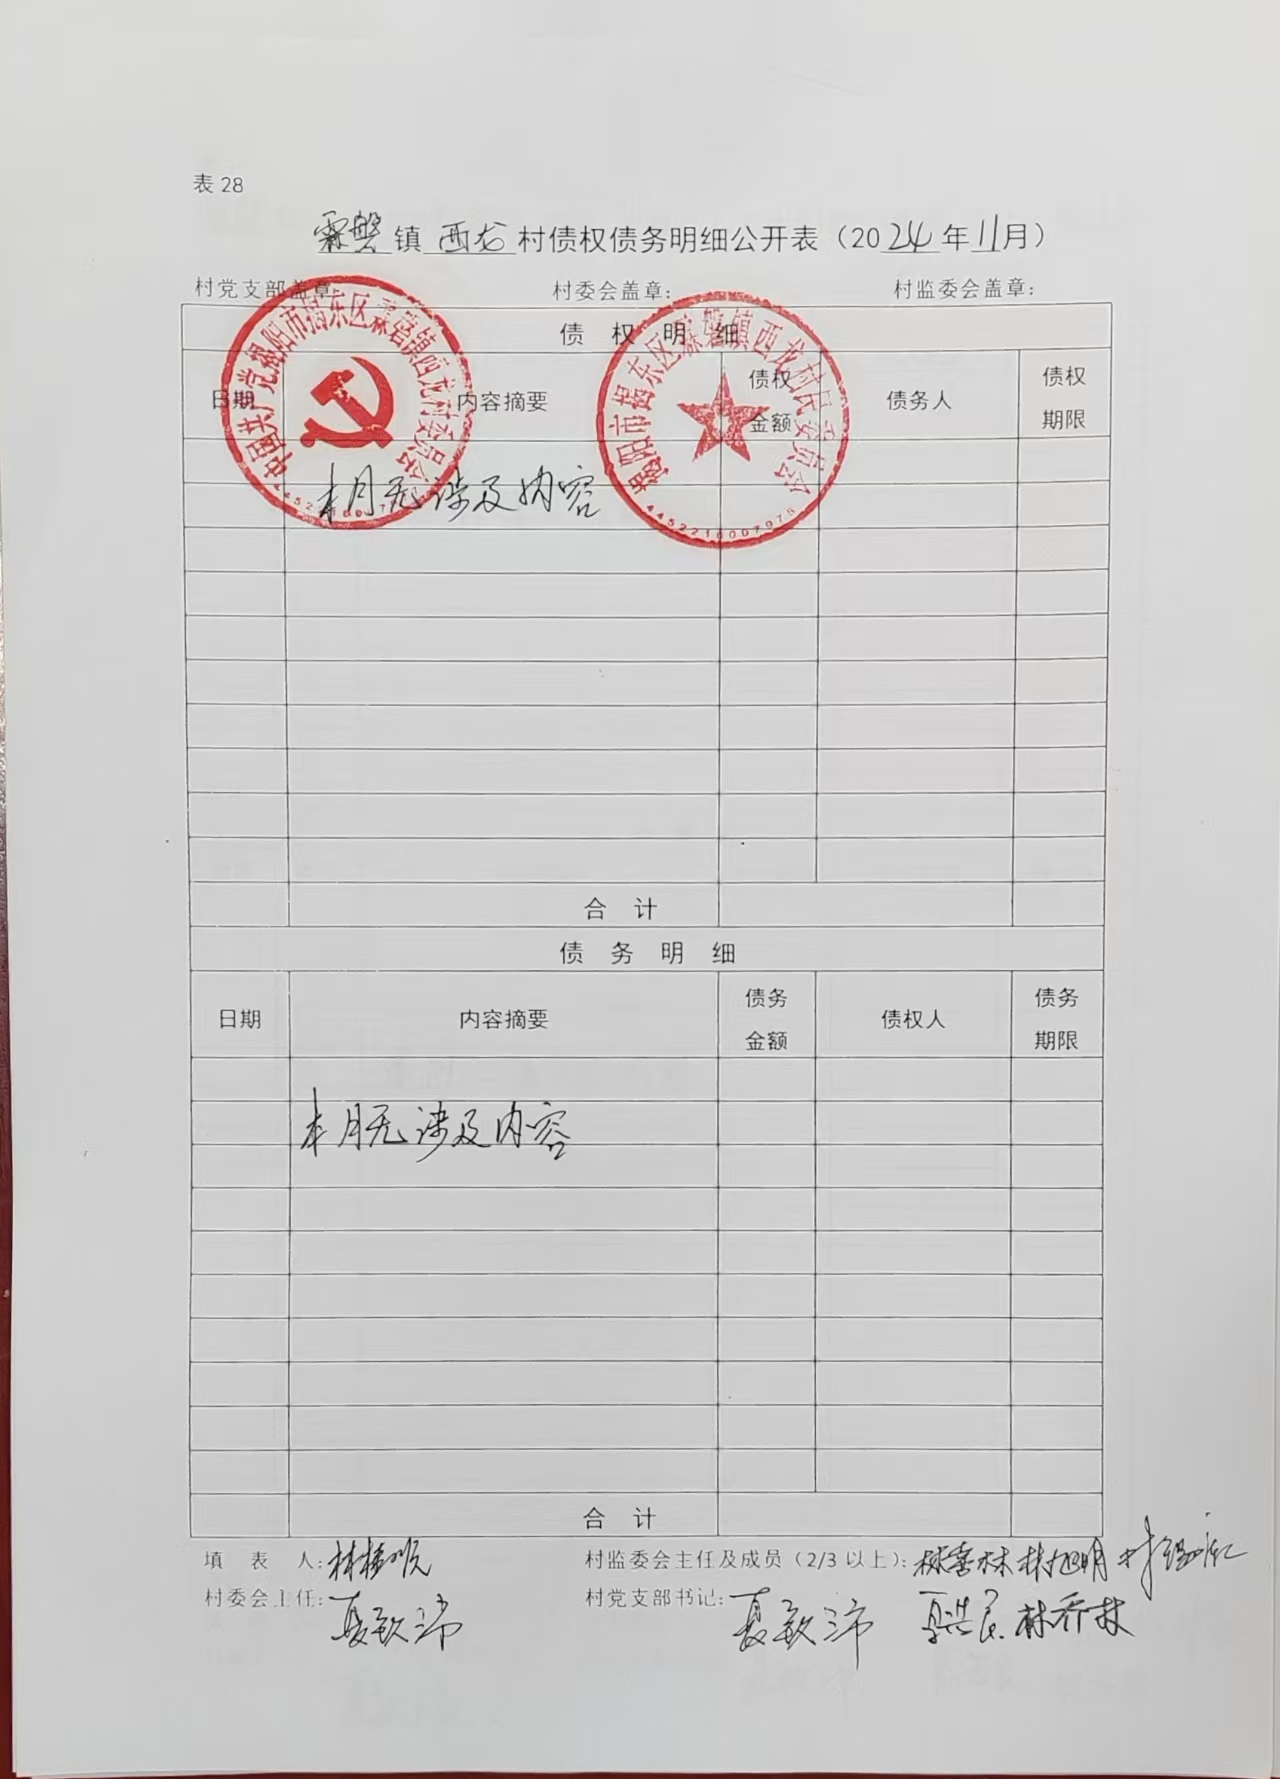 表 28
霖磐镇西龙村债权债务明细公开表（2024年11月）
村党支部盖章： 村委会盖章： 村监委会盖章：
中国共产党揭阳市揭东区霖磐镇西龙村委员会
揭阳市揭东区霖磐镇西龙村民委员会
4452210007975
债 权 明 细
日期 内容摘要 债权金额 债务人 债权期限
本月无涉及内容
合 计
债 务 明 细
日期 内容摘要 债务金额 债权人 债务期限
本月无涉及内容
合 计
填 表 人： 村监委会主任及成员（2/3 以上）： 林喜林 林旭明
村委会主任： 村党支部书记： 林乔林